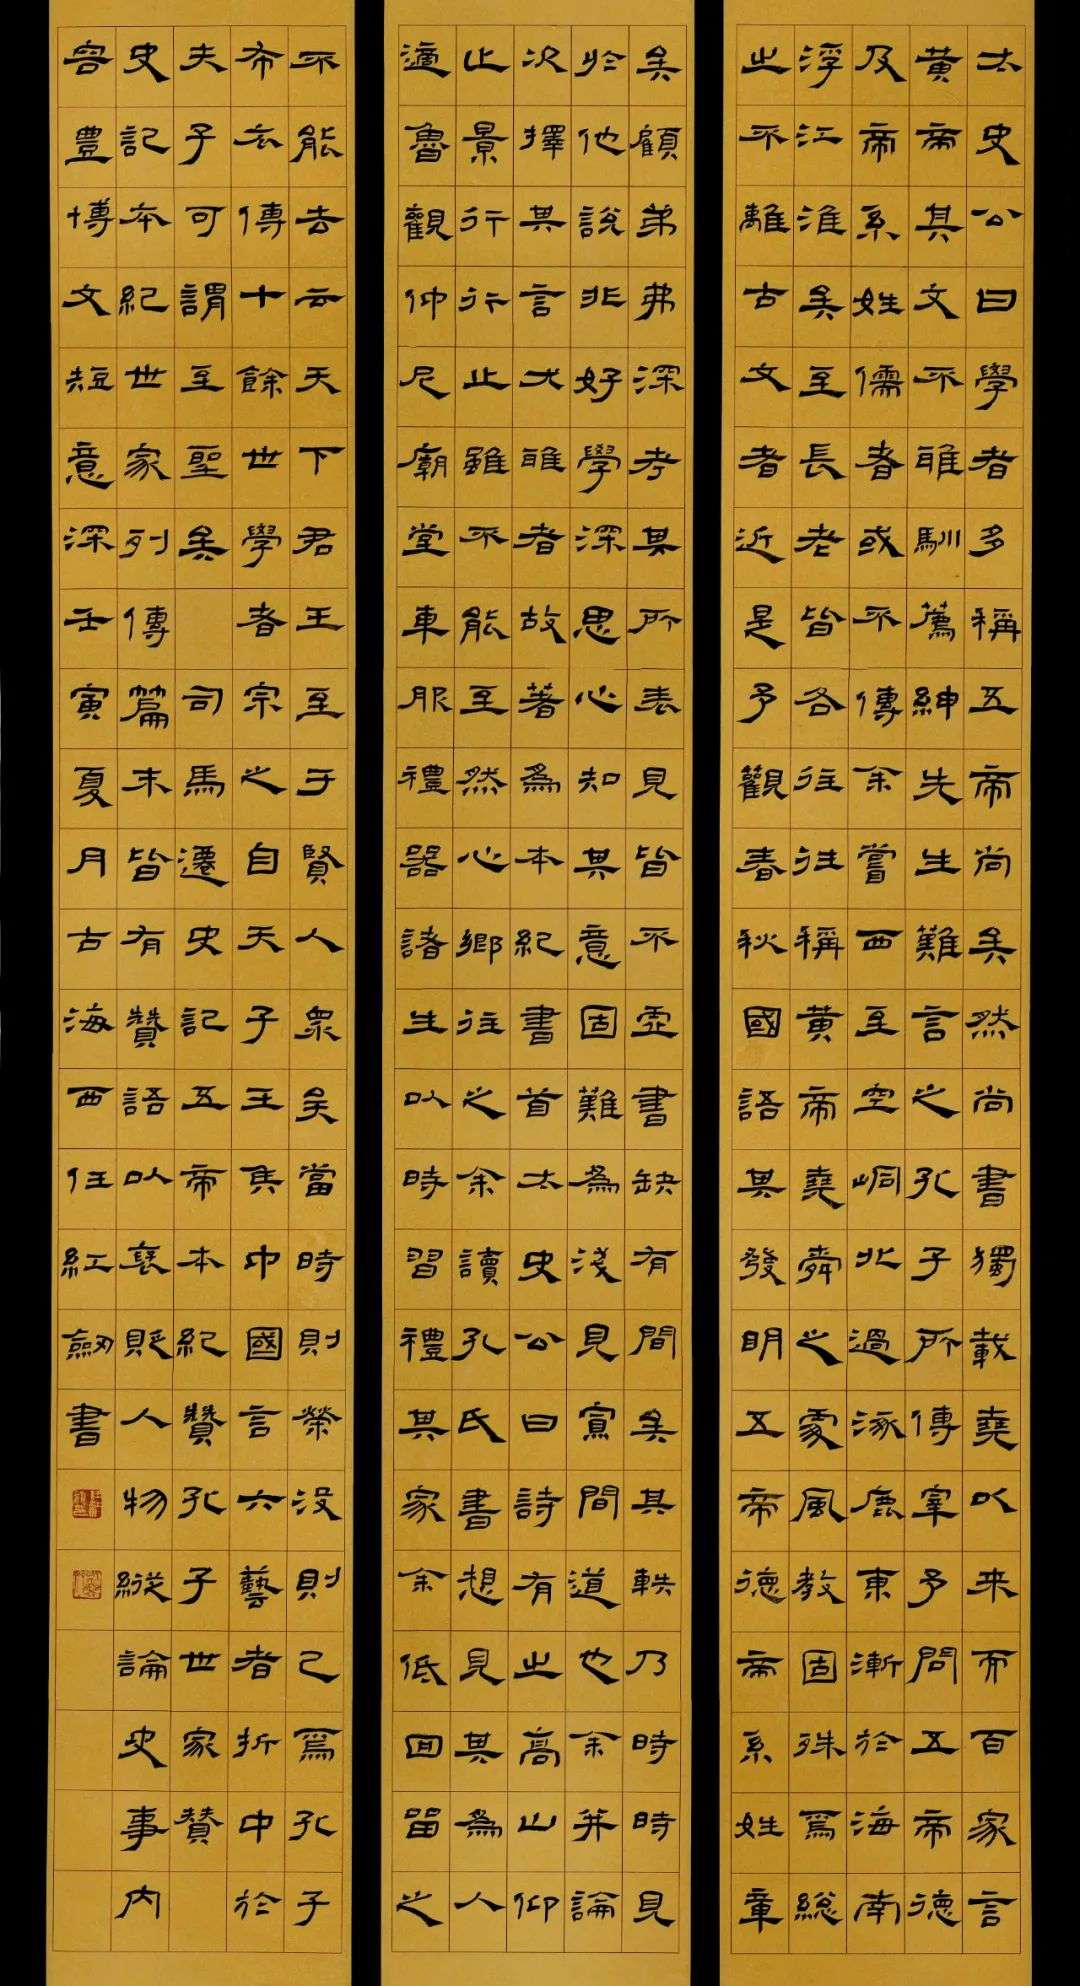 太史公曰學者多稱五帝尚矣然尚書獨載堯以来而百家言
黄帝其文不雅馴薦紳先生難言之孔子所傳宰予問五帝德
及帝系姓儒者或不傳余嘗西至空峒北過涿鹿東漸於海南
浮江淮矣至長老皆各往往稱黄帝堯舜之處風教固殊焉總
之不離古文者近是予觀春秋國語其發明五帝德帝系姓章
矣顧弟弗深考其所表見皆不虛書缺有間矣其軼乃時時見
於他說非好學深思心知其意固難為淺見寡聞道也余并論
次擇其言尤雅者故著為本紀書首太史公曰詩有之高山仰
止景行行止雖不能至然心鄉往之余讀孔氏書想見其為人
適魯觀仲尼廟堂車服禮器諸生以時習禮其家余低回留之
不能去云天下君王至于賢人衆矣當時則榮没則已焉孔子
布衣傳十餘世學者宗之自天子王侯中國言六藝者折中於
夫子可謂至聖矣 司馬遷史記五帝本紀贊孔子世家贊
史記本紀世家列傳篇末皆有贊語以褒貶人物縱論史事内
容豐博文短意深壬寅夏月古海西任紅劒書